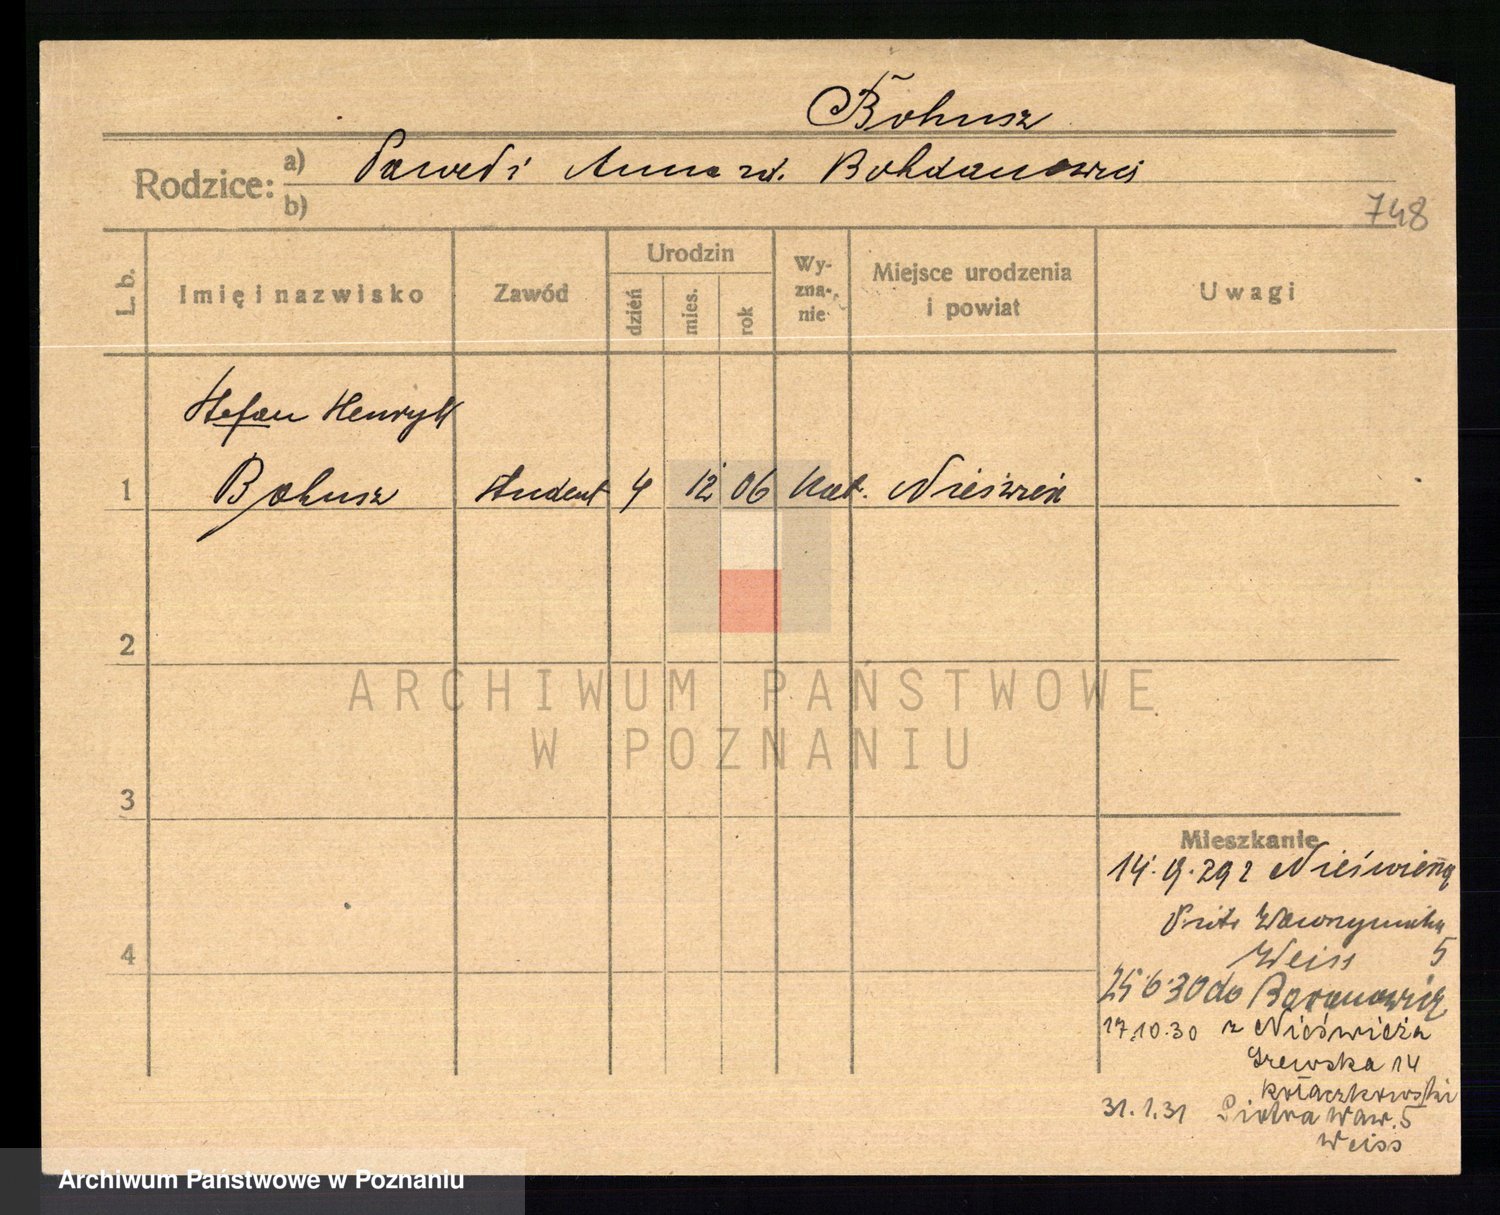 Bohusz
Rodzice: a) Paweł i Anna zd. Bohdanowicz
b)
748
L. b. Imię i nazwisko Zawód Urodzin dzień mies. rok Wyznanie Miejsce urodzenia i powiat Uwagi
Stefan Henryk
1 Bohusz student 4 12 06 kat. Nieśwież
2
ARCHIWUM PAŃSTWOWE
W POZNANIU
3
Mieszkanie
14.9.29 z
Piotr Wawrzyniaka
4 Weiss 5
25.6.30 do Baranowicz
17.10.30 z Nieświeża
14
Kołaczkowski
31.1.31 Piotra Waw. 5
Weiss
Archiwum Państwowe w Poznaniu